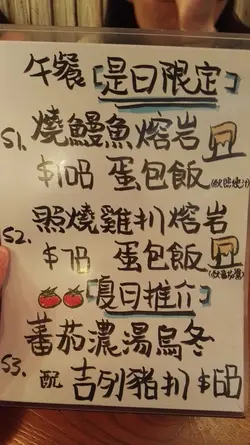 午餐【是日限定】
S1. 燒鰻魚熔岩
$108 蛋包飯
S2. 照燒雞扒熔岩
$78 蛋包飯
【夏日推介】
蕃茄濃湯烏冬
S3. 配 吉列豬扒 $68